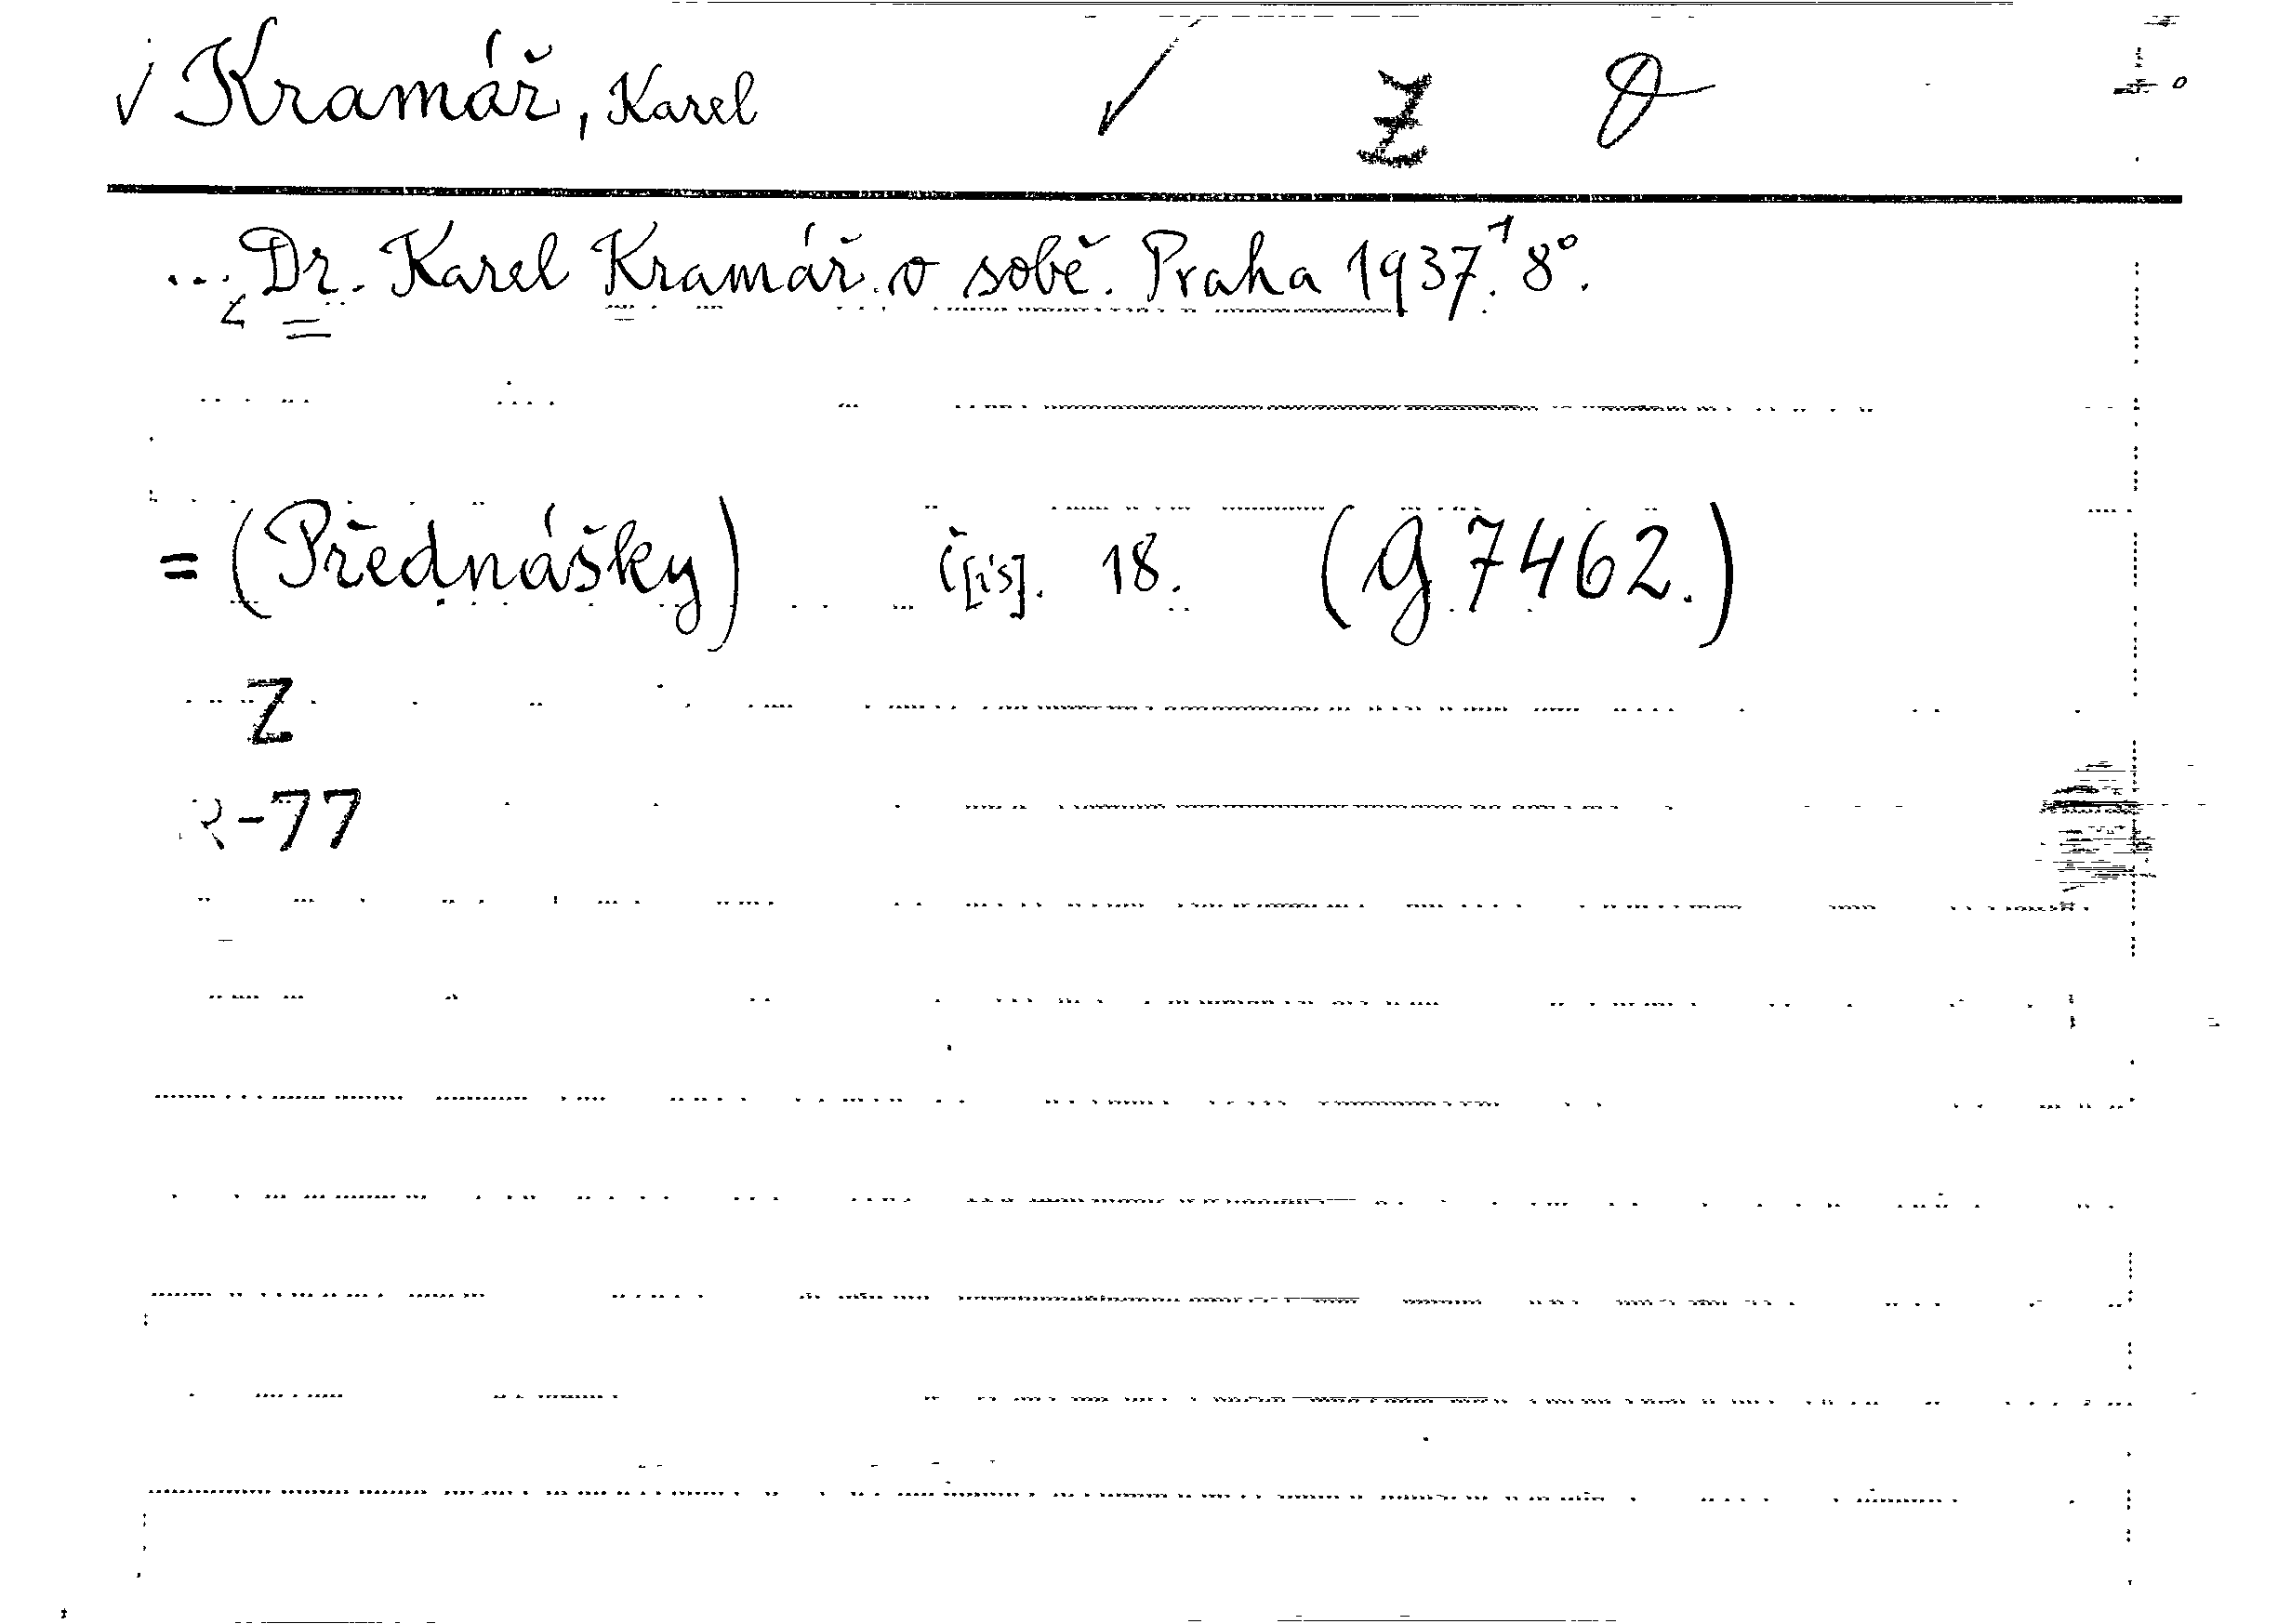 Kramář, Karel Z
... Dr. Karel Kramář o sobě. Praha 1937.¹ 8°.
= (Přednášky) Č[ís]. 18. (G 7462.)
Z
R-77